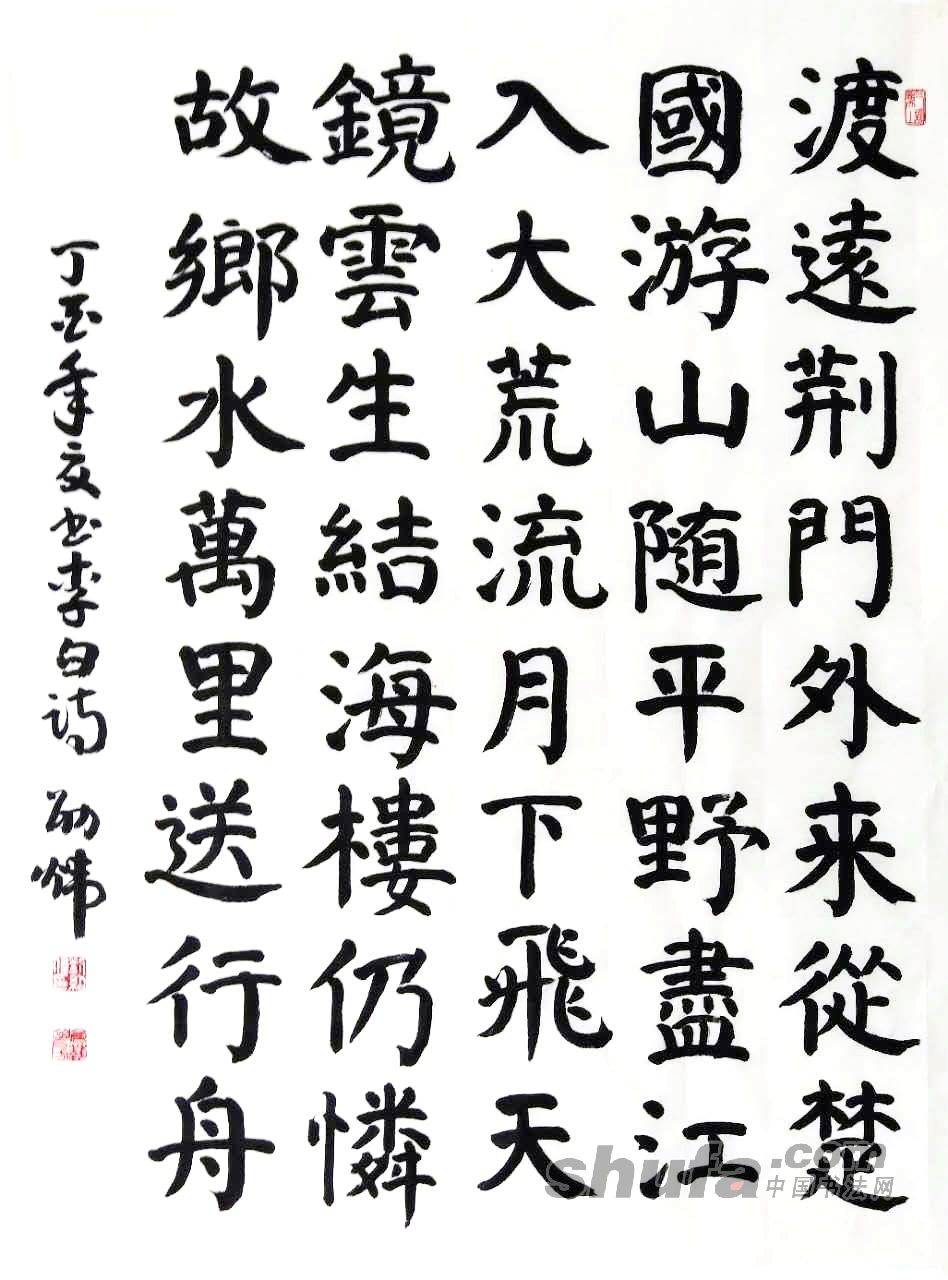 渡遠荆門外来從楚
國游山随平野盡江
入大荒流月下飛天
鏡雲生結海樓仍憐
故鄉水萬里送行舟
丁酉年夏书李白詩
shufa.com
中国书法网